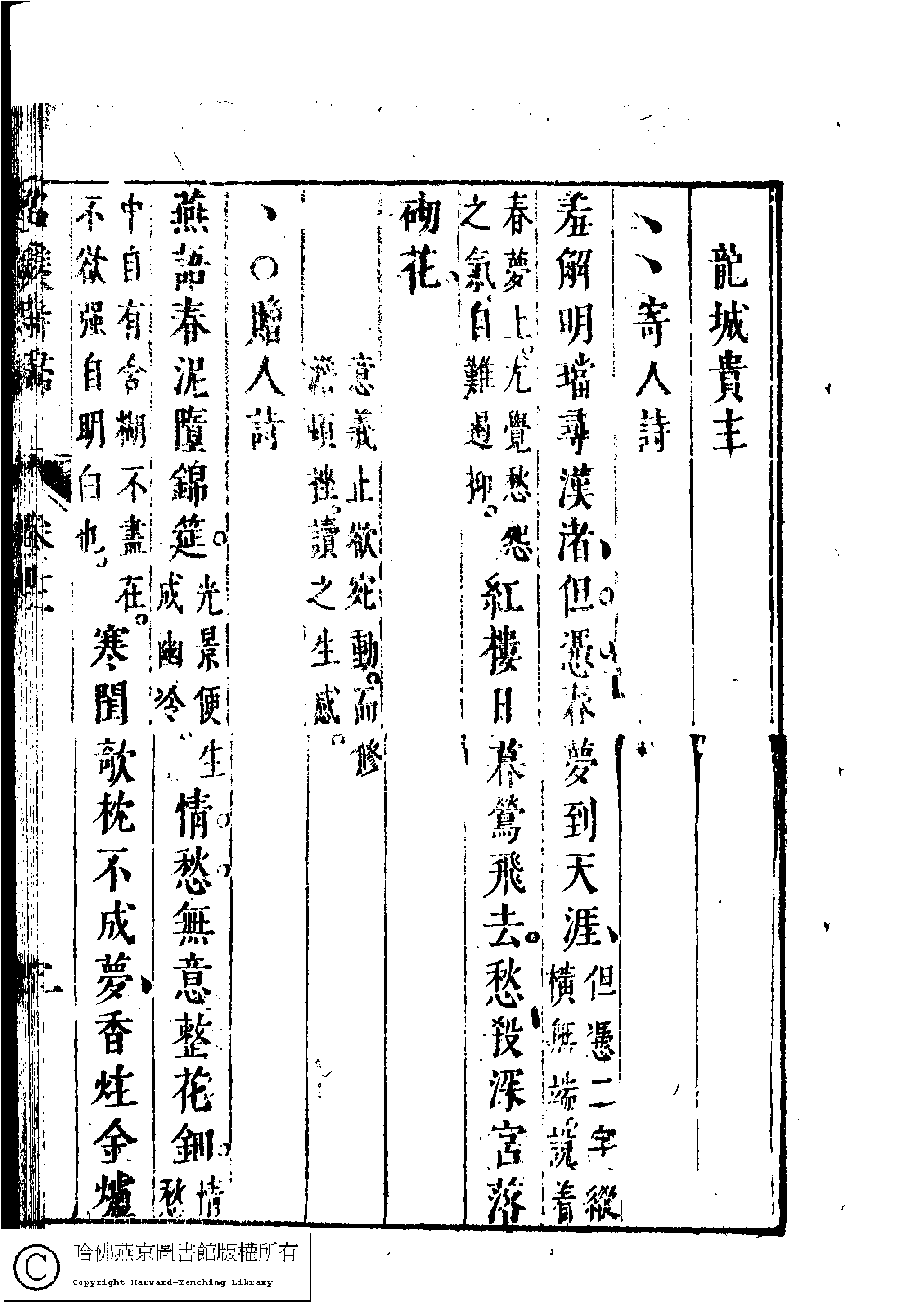 龍城貴主
寄人詩
羞解明璫尋漢渚但憑春夢到天涯但憑二字縱橫無端說着
春夢上尤覺愁怨之氣自難過抑紅樓日暮鶯飛去愁殺深宮落
砌花
意義止欲宛動而修澹頓挫讀之生感
〇贈人詩
燕語春泥墮錦筵光景便生成幽冷情愁無意整花鈿情愁
中自有含糊不盡在不欲强自明白也寒閨欹枕不成夢香炷金爐
卷
哈佛燕京圖書館版權所有
Copyright Harvard-Yenching Library